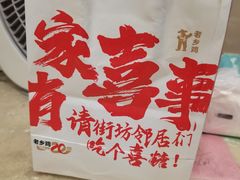 老乡鸡
家有喜事
请街坊邻居们
吃个喜糖！
老乡鸡 20